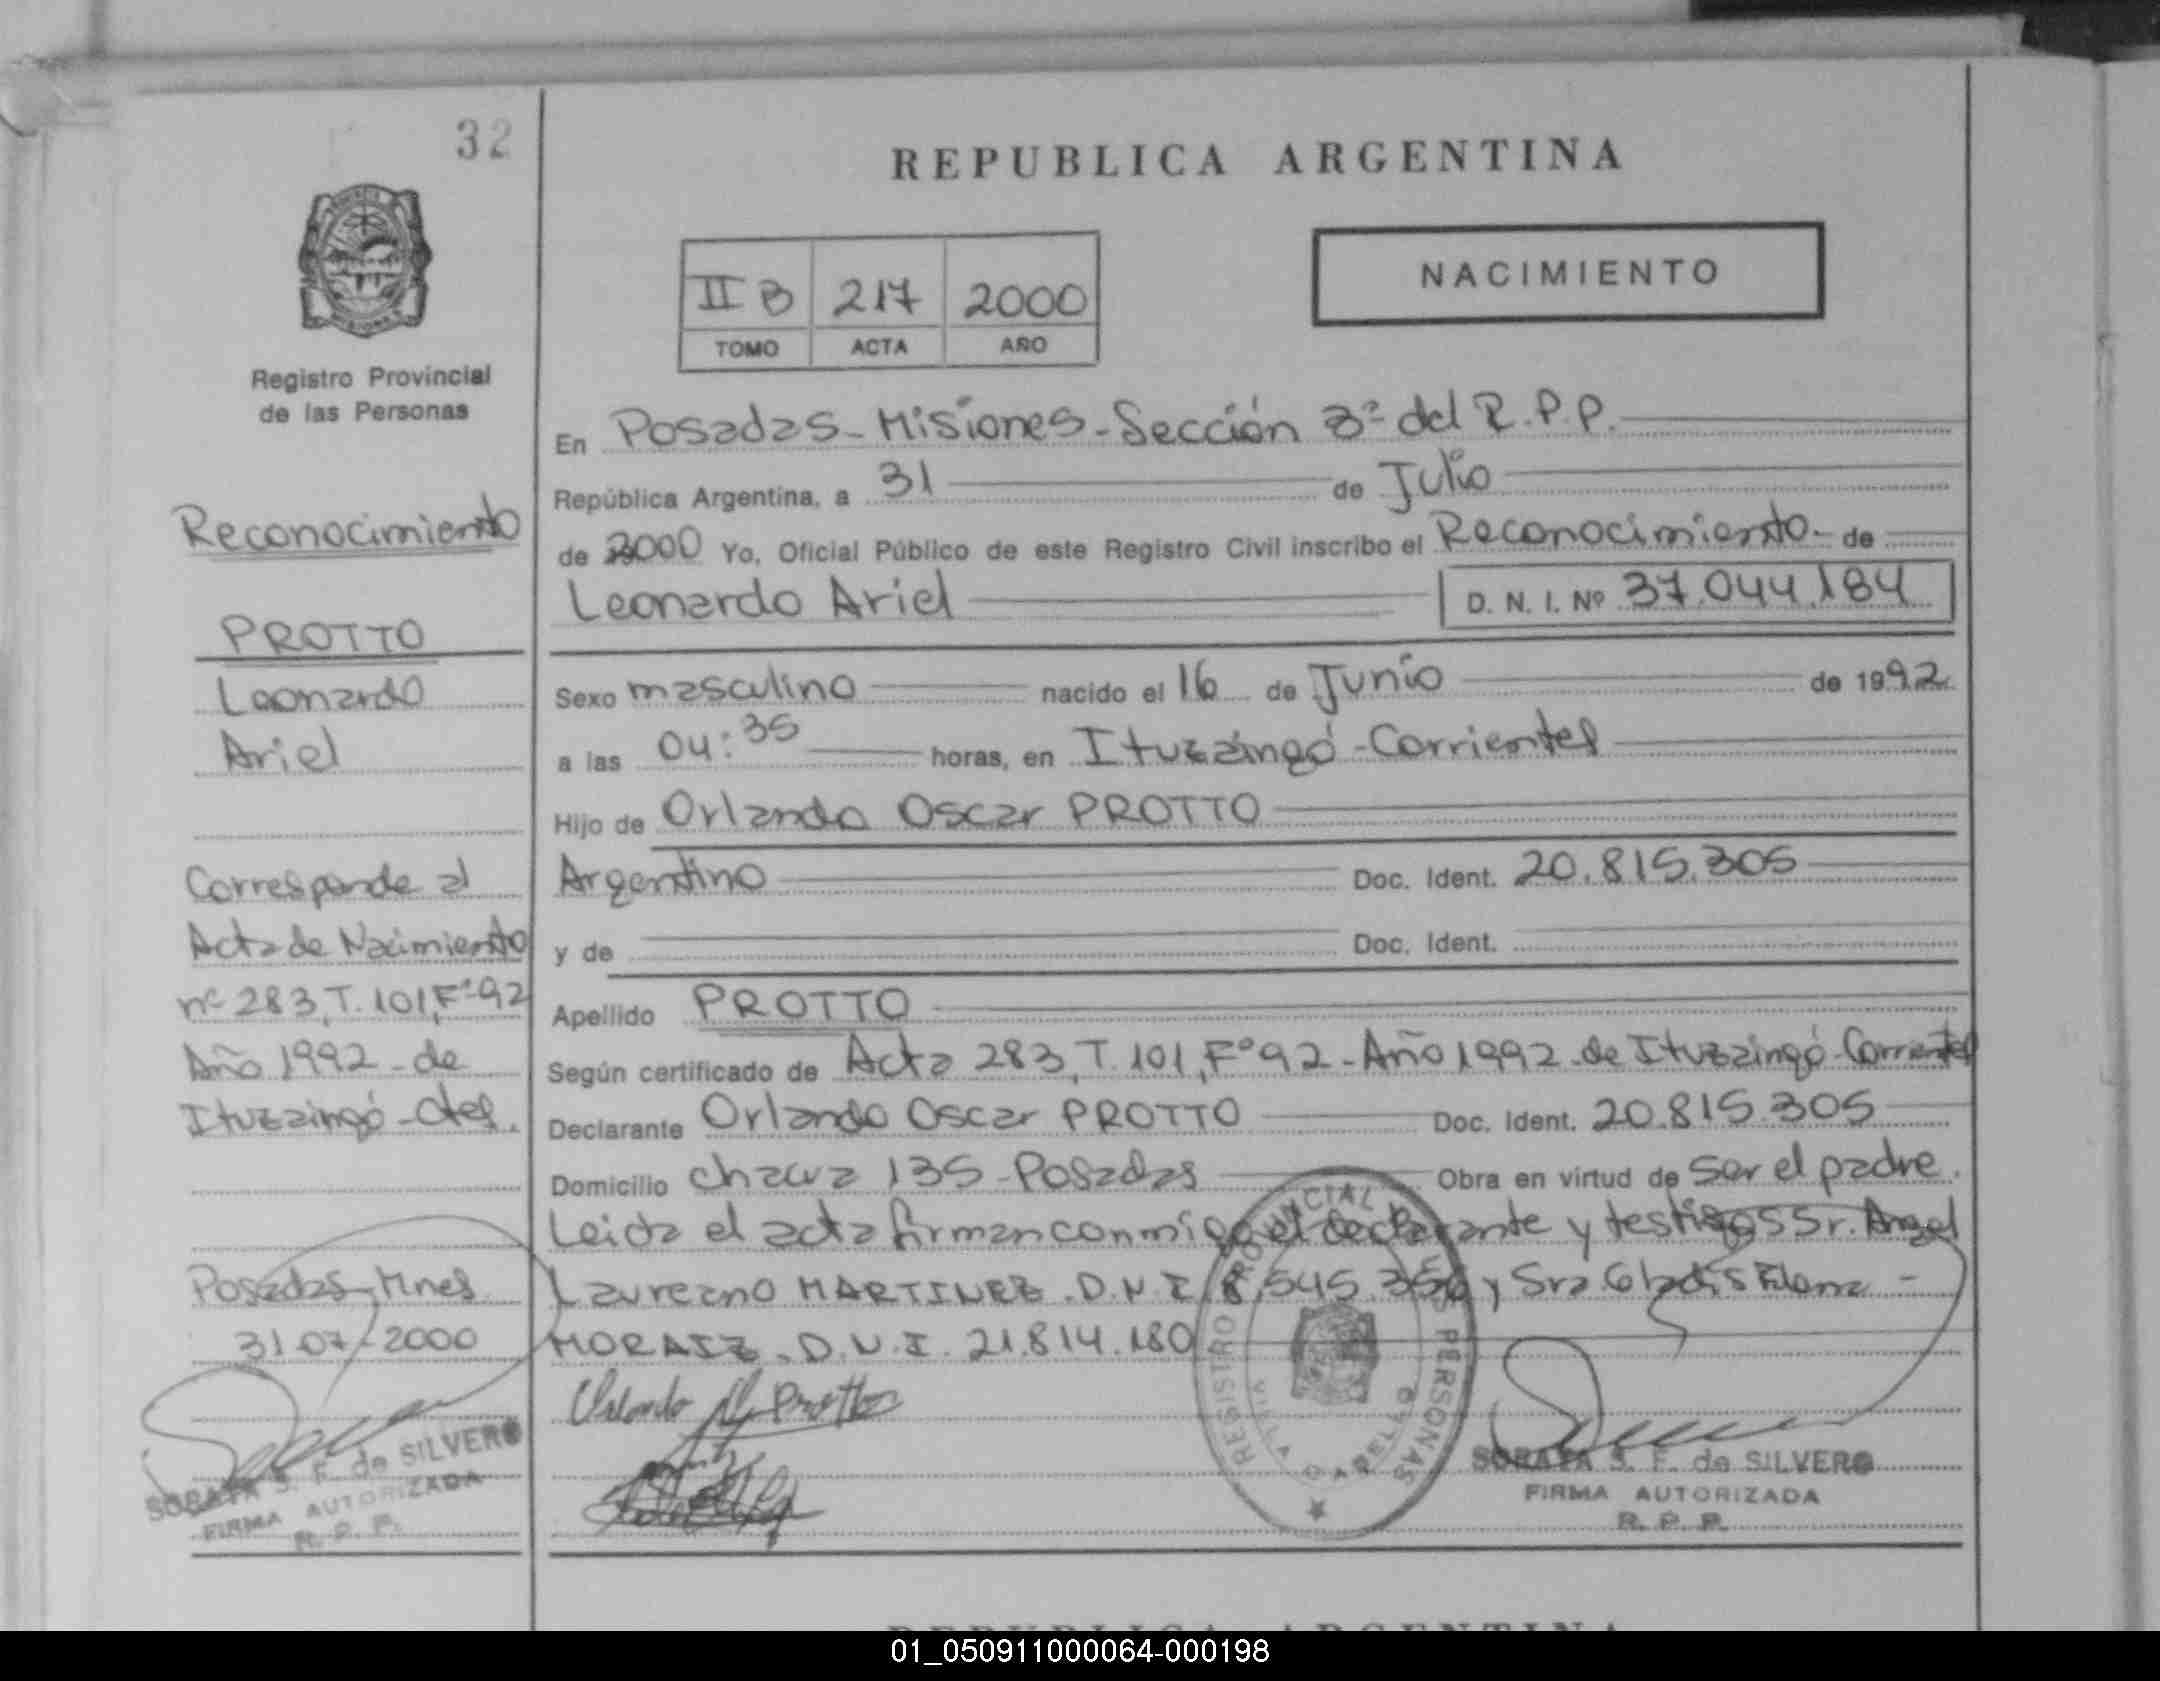 32
REPUBLICA ARGENTINA
II B 217 2000
TOMO ACTA AÑO
NACIMIENTO
Registro Provincial
de las Personas
Reconocimiento
PROTTO
Leonardo
Ariel
Corresponde al
Acta de Nacimiento
nº 283, T. 101, Fº 92
Año 1992 - de
Ituzaingó - Ctes.
Posadas - Mnes
31-07-2000
SORAYA S. F. de SILVERO
FIRMA AUTORIZADA
R. P. P.
En Posadas - Misiones - Sección 3ª del R.P.P.
República Argentina, a 31 de Julio
de 2000 Yo, Oficial Público de este Registro Civil inscribo el Reconocimiento - de
Leonardo Ariel D. N. I. Nº 37.044.184
Sexo masculino nacido el 16 de Junio de 1992
a las 04:35 horas, en Ituzaingó - Corrientes
Hijo de Orlando Oscar PROTTO
Argentino Doc. Ident. 20.815.305
y de Doc. Ident.
Apellido PROTTO
Según certificado de Acta 283, T. 101, Fº 92 - Año 1992 - de Ituzaingó - Corrientes
Declarante Orlando Oscar PROTTO Doc. Ident. 20.815.305
Domicilio 135 - Posadas Obra en virtud de ser el padre.
Leida el acta firman conmigo el declarante y testigos Sr. Angel
Laureano MARTINEZ - D.N.I. 8.545.356 y Sra Gladis -
MORAIZ - D.N.I. 21.814.180
REGISTRO PROVINCIAL PERSONAS
VILLA CABELLO
SORAYA S. F. de SILVERO
FIRMA AUTORIZADA
R. P. P.
REPUBLICA ARGENTINA
01_050911000064-000198